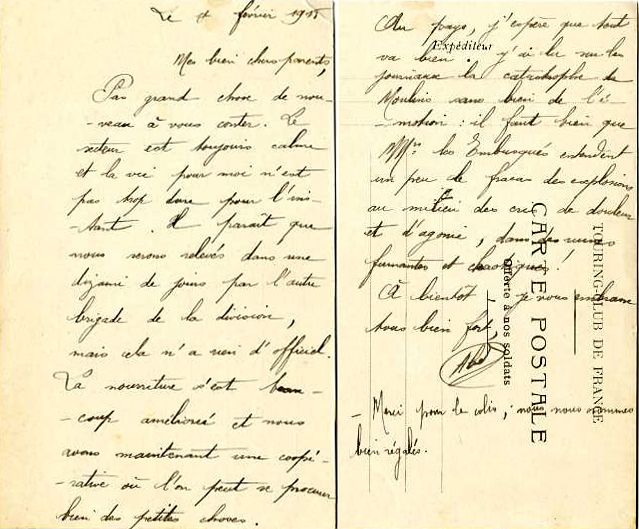 Le février 191
Mes bien chers parents,
Pas grand chose de nou-
-veau à vous conter. Le
secteur est toujours calme
et la vie pour moi n'est
pas trop dure pour l'ins-
-tant. Il paraît que
nous serons relevés dans une
dizaine de jours par l'autre
brigade de la division,
mais cela n'a rien d'officiel.
La nourriture s'est beau-
-coup améliorée et nous
avons maintenant une coopé-
-rative où l'on peut se procurer
bien des petites choses.
Au pays, j'espère que tout
va bien. J'ai lu sur les
journaux la catastrophe de
Moulins sans bien de l'é-
-motion : il faut bien que
MMrs les Embusqués entendent
un peu le fracas des explosions
au milieu des cris de douleur
et d'agonie, dans des ruines
fumantes et chaotiques !
À bientôt je vous embrasse
tous bien fort,
Abel
- Merci pour le colis, nous nous sommes
bien régalés.
Expéditeur
TOURING-CLUB DE FRANCE
CARTE POSTALE
Offerte à nos soldats